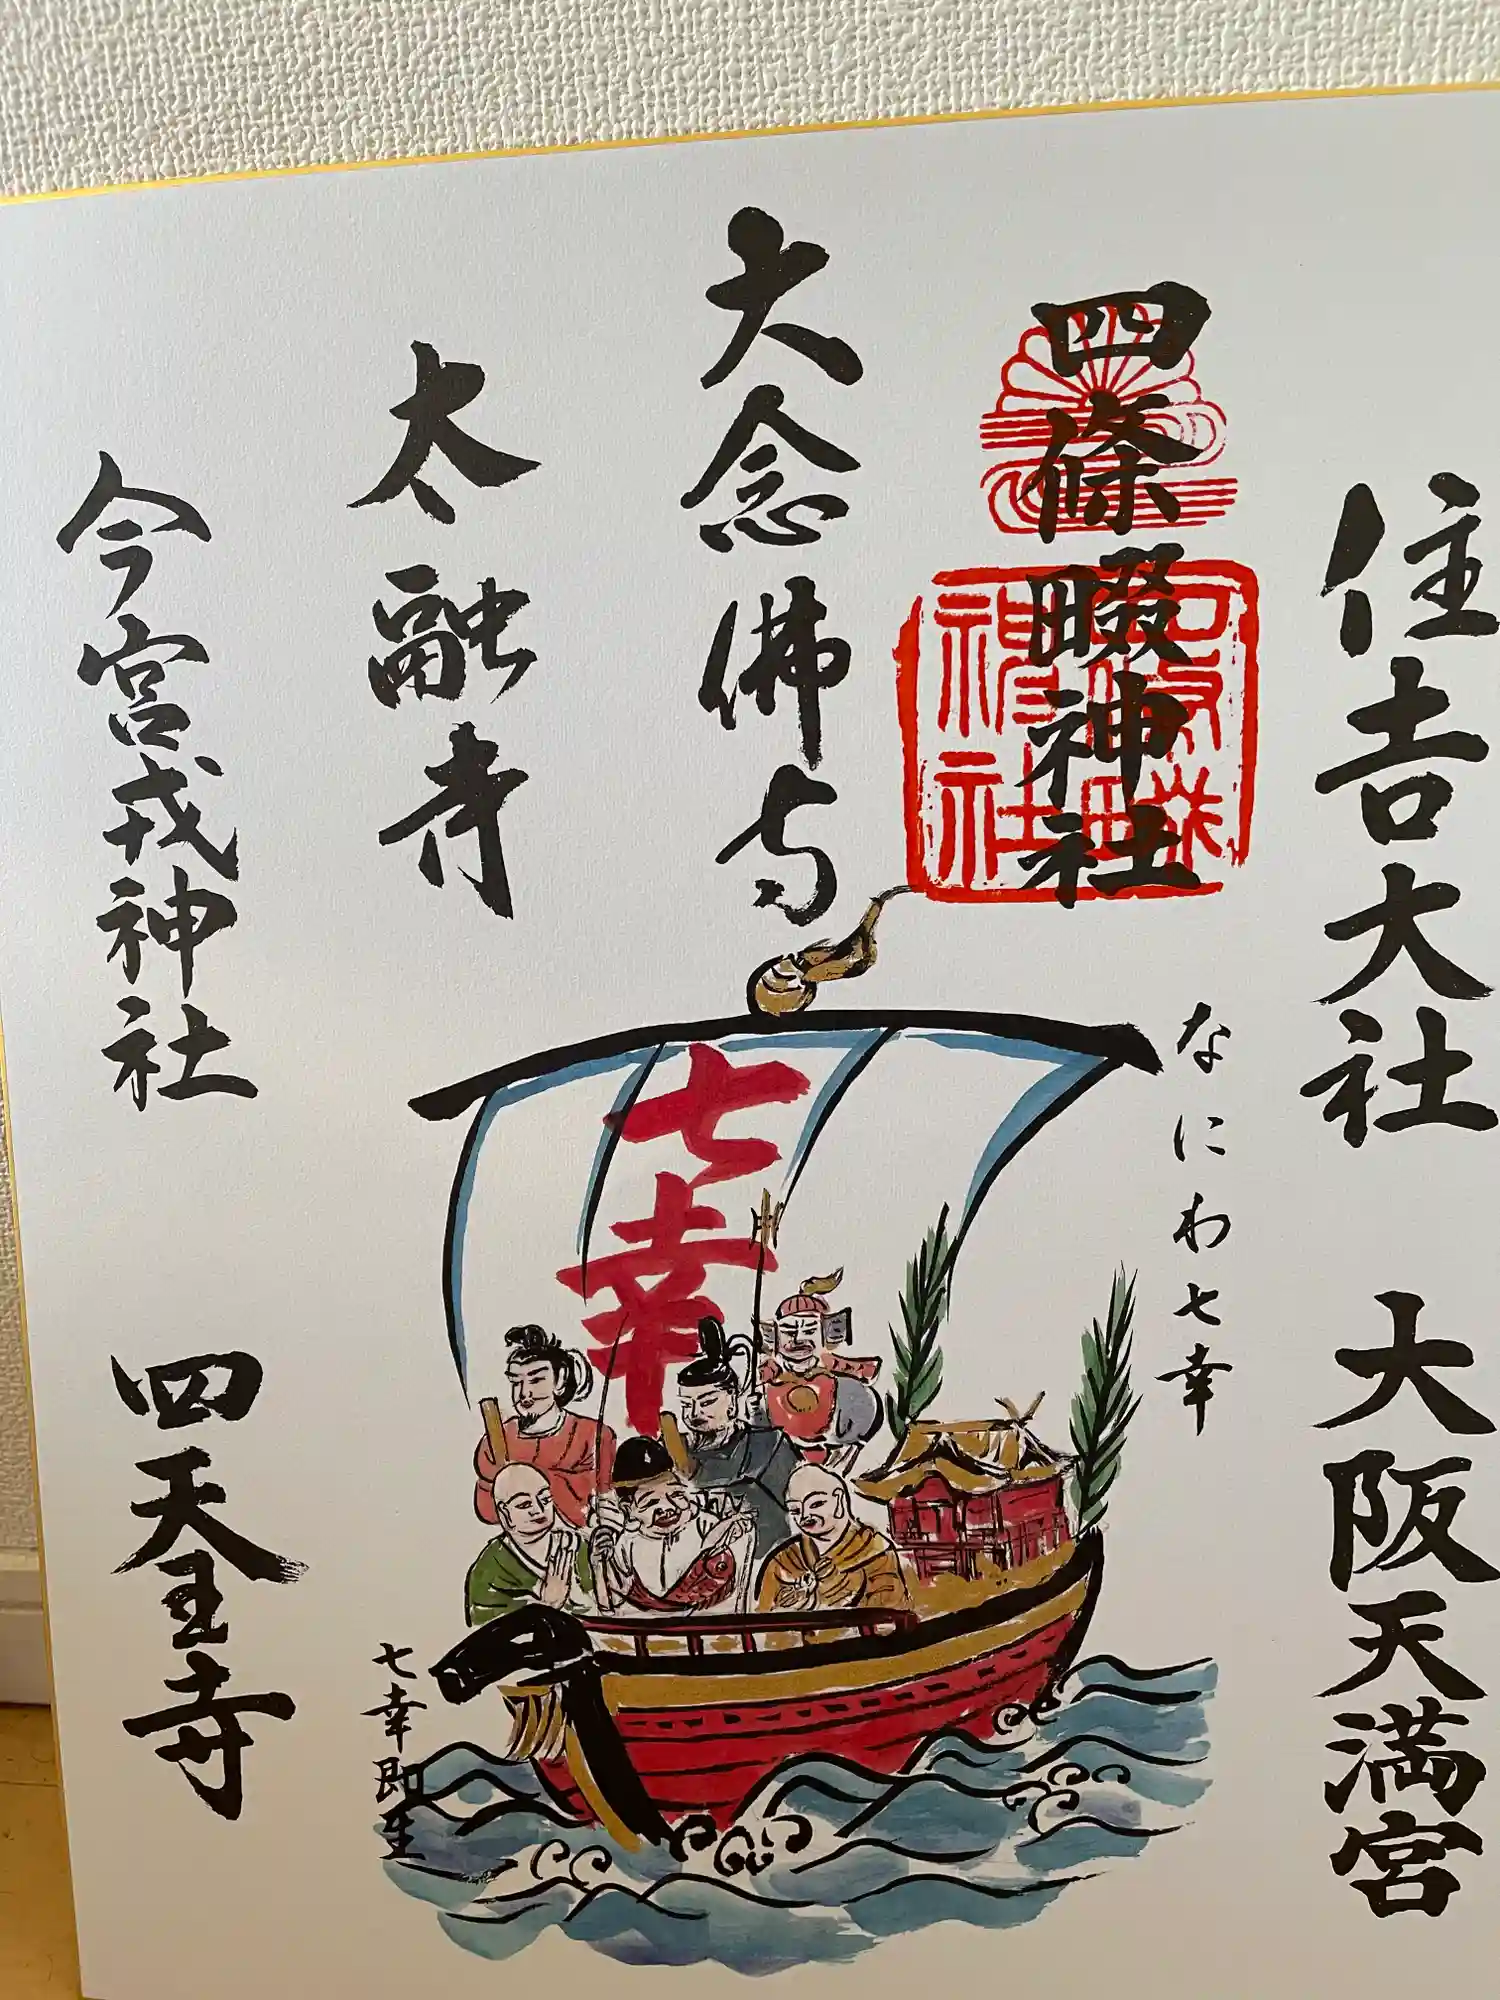 住吉大社
大阪天満宮
四條畷神社
大念佛寺
太融寺
今宮戎神社
四天王寺
なにわ七幸
七幸
七幸即生